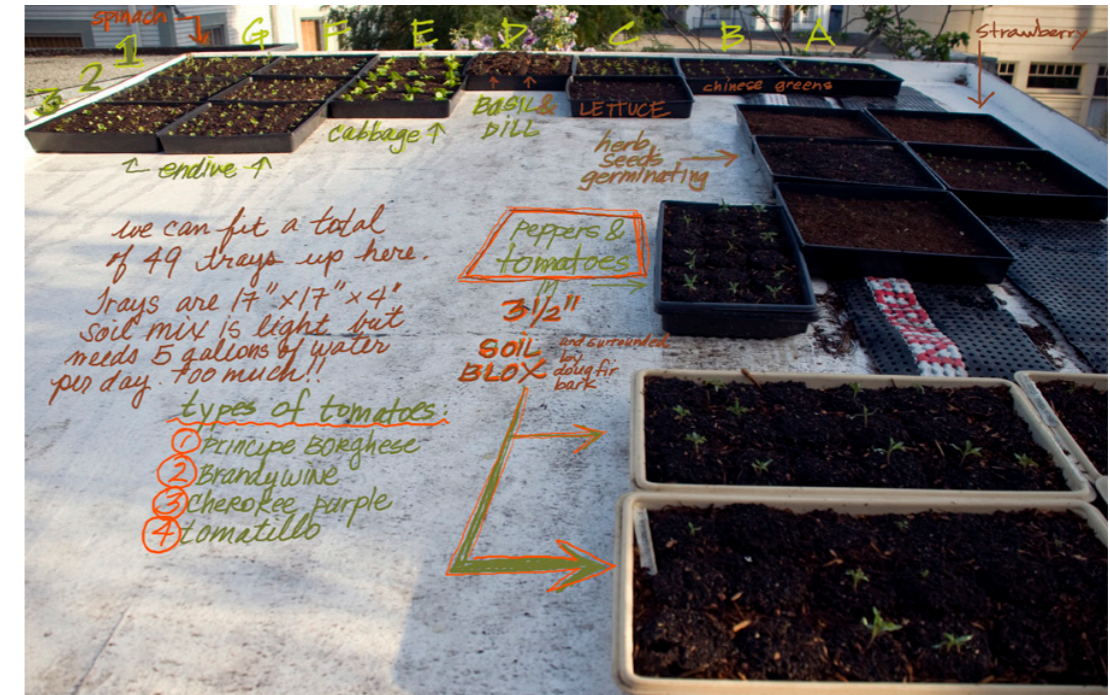 spinach
1 G F E D C B A
2
3
strawberry
chinese greens
BASIL &
DILL
LETTUCE
cabbage
endive
herb
seeds
germinating
we can fit a total
of 49 trays up here.
Trays are 17"x17"x4"
soil mix is light but
needs 5 gallons of water
per day. too much!!
peppers &
tomatoes
in
3 1/2"
SOIL
BLOX
and surrounded
by
doug fir
bark
types of tomatoes:
1 Principe Borghese
2 Brandywine
3 Cherokee purple
4 tomatillo